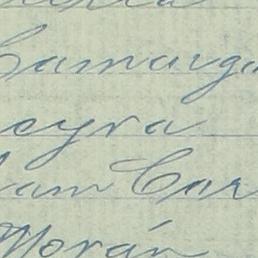 Camarg
eyra
am Car
Morán